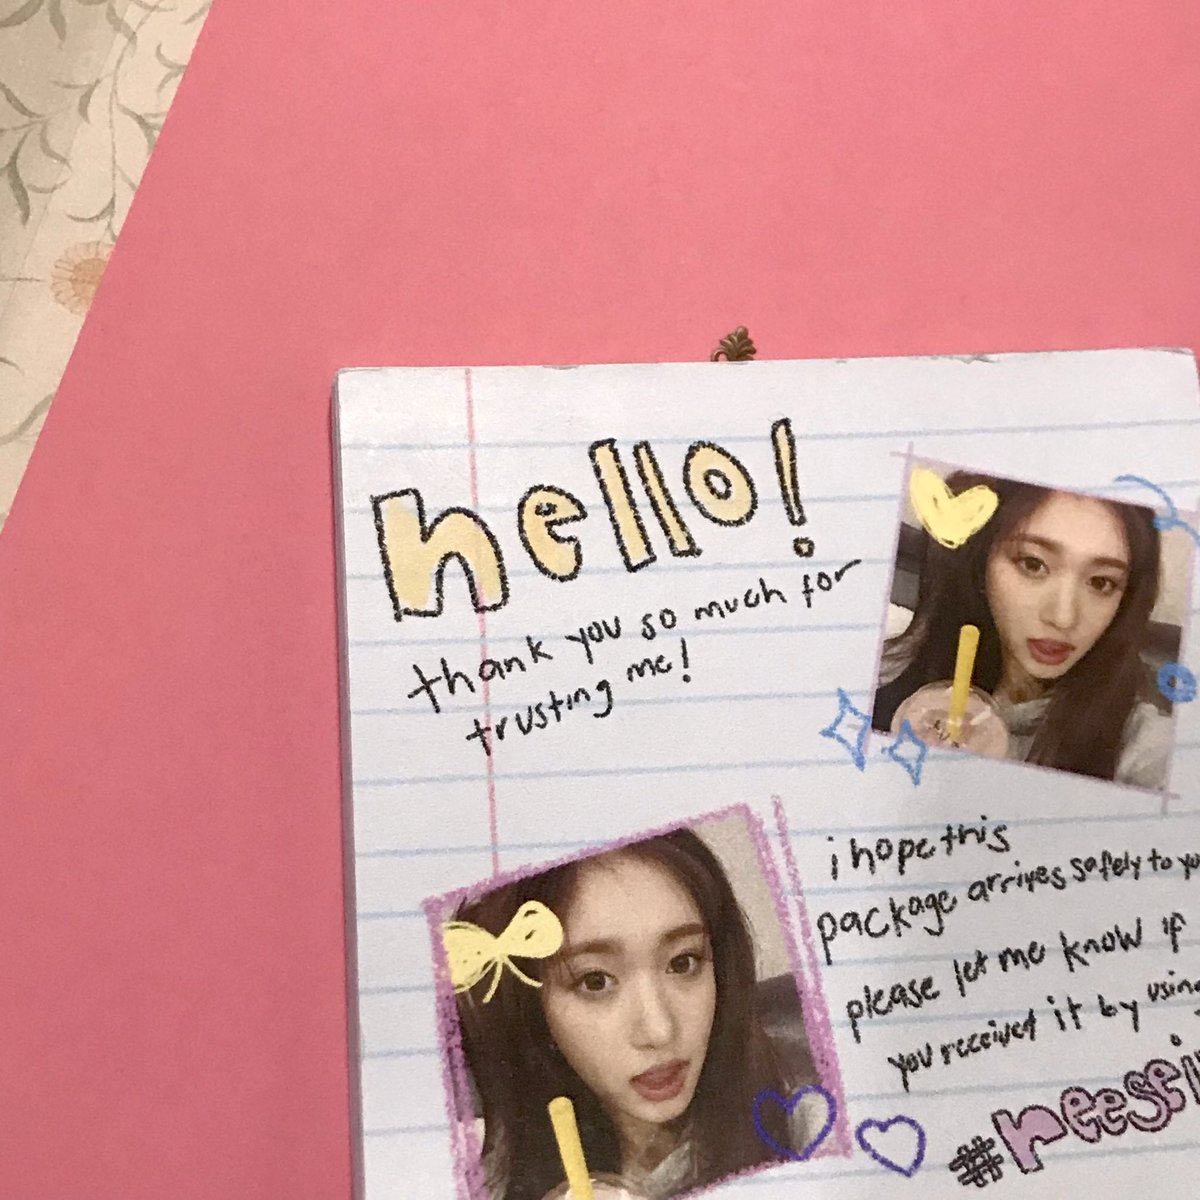 hello!
thank you so much for
trusting me!
i hope this
package arrives safely to
please let me know if
you received it by